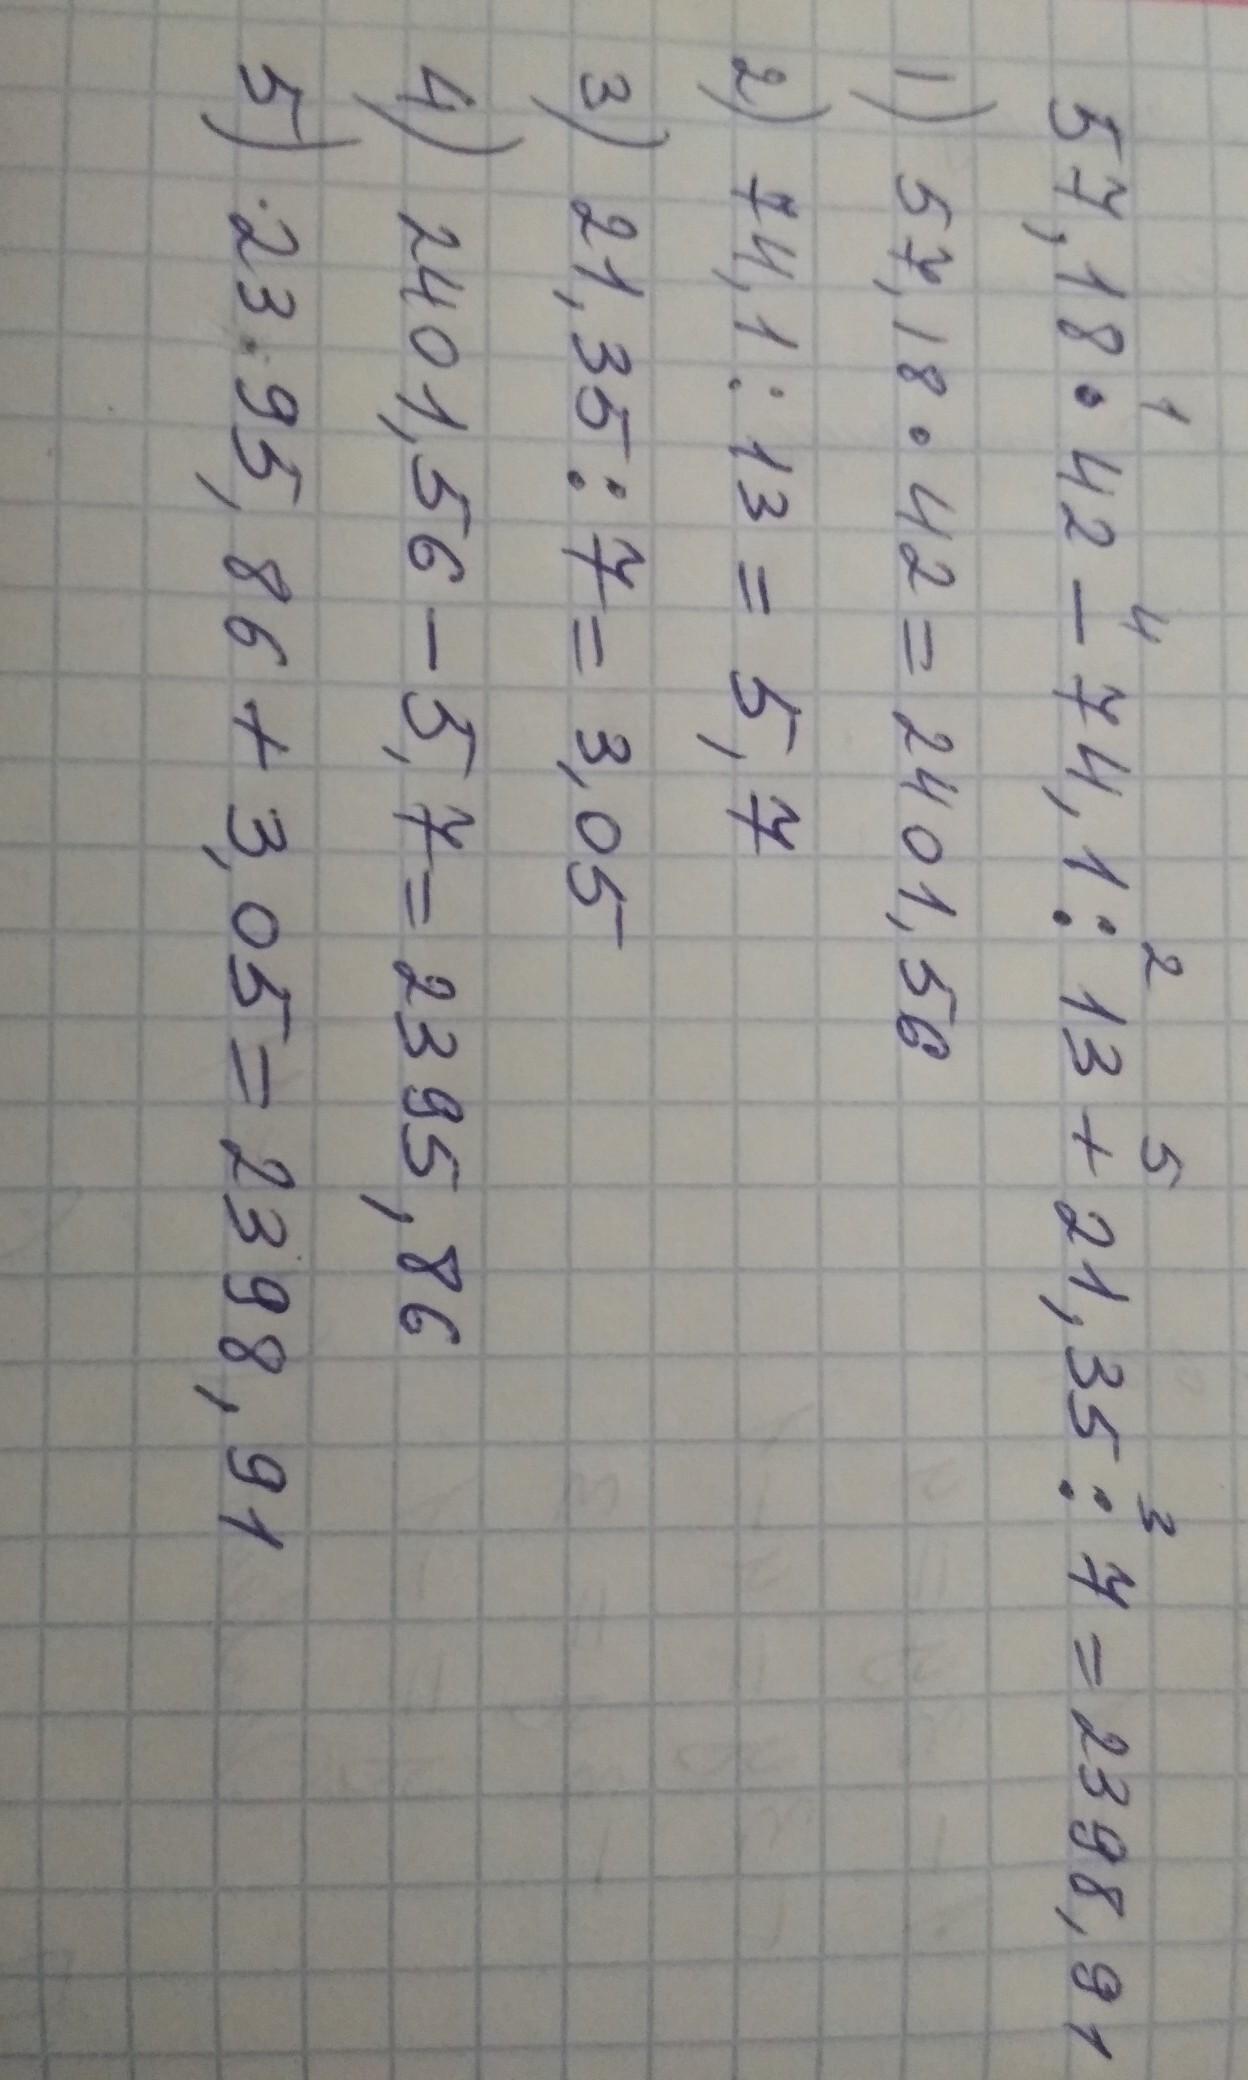 1 4 2 5 3
57,18 · 42 - 74,1 : 13 + 21,35 : 7 = 2398,91
1) 57,18 · 42 = 2401,56
2) 74,1 : 13 = 5,7
3) 21,35 : 7 = 3,05
4) 2401,56 - 5,7 = 2395,86
5) 2395,86 + 3,05 = 2398,91